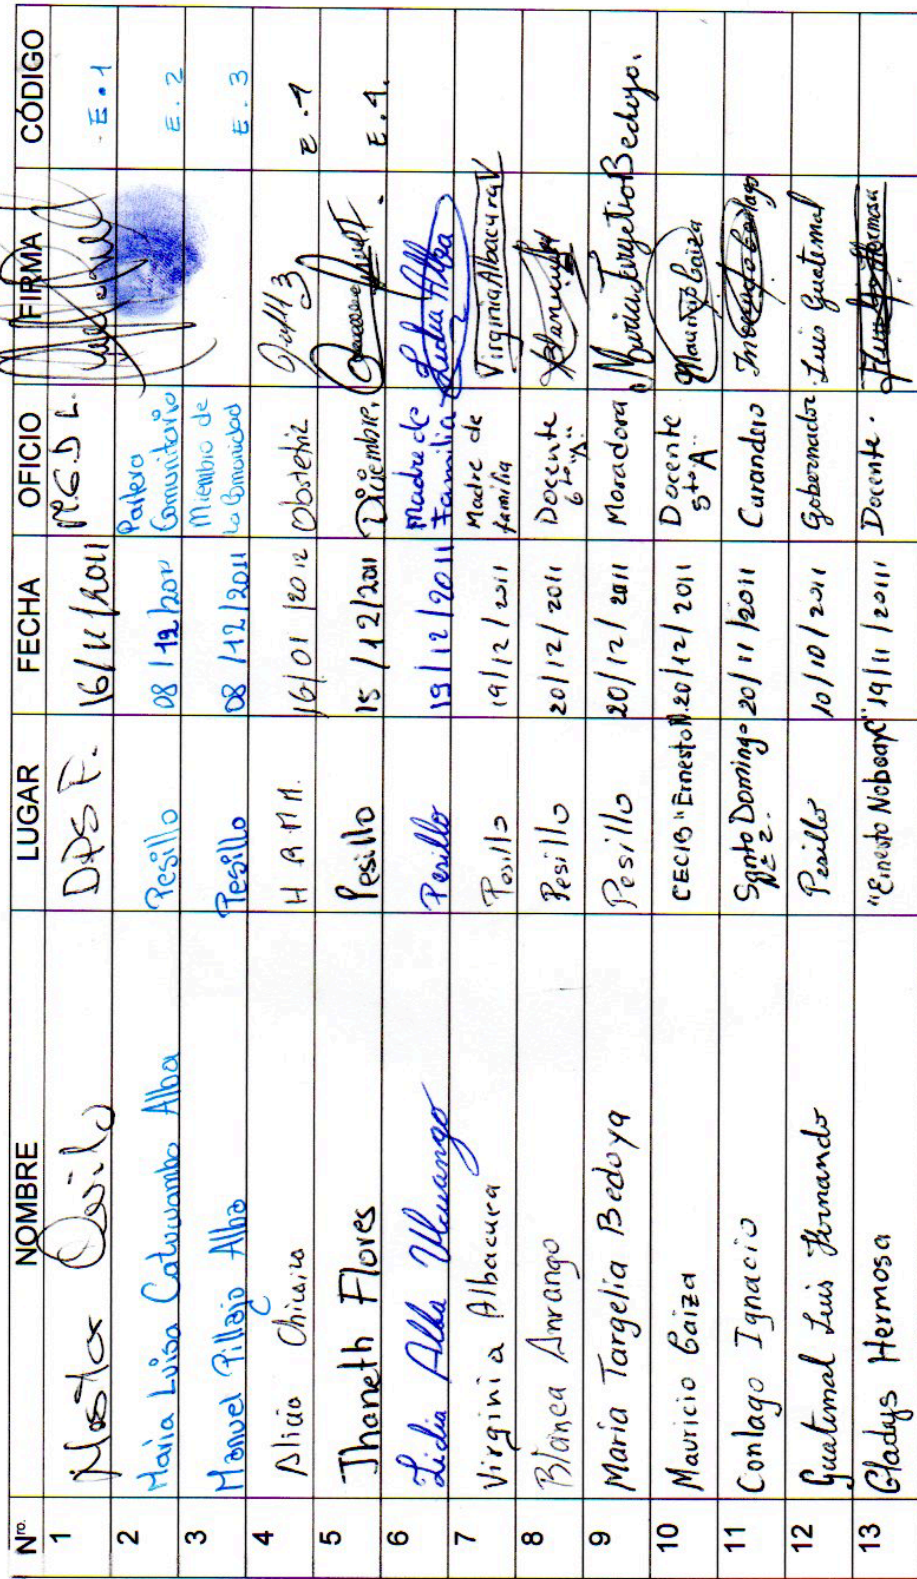 Nro. NOMBRE LUGAR FECHA OFICIO FIRMA CÓDIGO
1 Nestor 16/11/2011 E.1
2 Maria Luisa Catucuambo Alba Pesillo 08/12/2011 Partera Comunitaria E.2
3 Manuel Pillajo Alba Pesillo 08/12/2011 Miembro de La Comunidad E.3
4 Alicia 16/01/2012 Obstetriz
5 Jhaneth Flores Pesillo 15/12/2011 Diciembre.
6 Lidia Alba Ulcuango Pesillo 19/12/2011 Madre de Familia Lidia Alba
7 Virginia Albacura Pesillo 19/12/2011 Madre de familia Virginia Albacura V
8 Blanca Anrango Pesillo 20/12/2011 Docente 6to "A"
9 Maria Targelia Bedoya Pesillo 20/12/2011 Moradora
10 Mauricio Caiza CECIB "Ernesto N. 20/12/2011 Docente 5to A Mauricio Caiza
11 Conlago Ignacio Santo Domingo Nº 2. 20/11/2011 Curandero
12 Guatemal Luis Fernando Pesillo 10/10/2011 Gobernador Luis Guatemal
13 Gladys Hermosa "Ernesto Noboa y C" 19/11/20111 Docente.